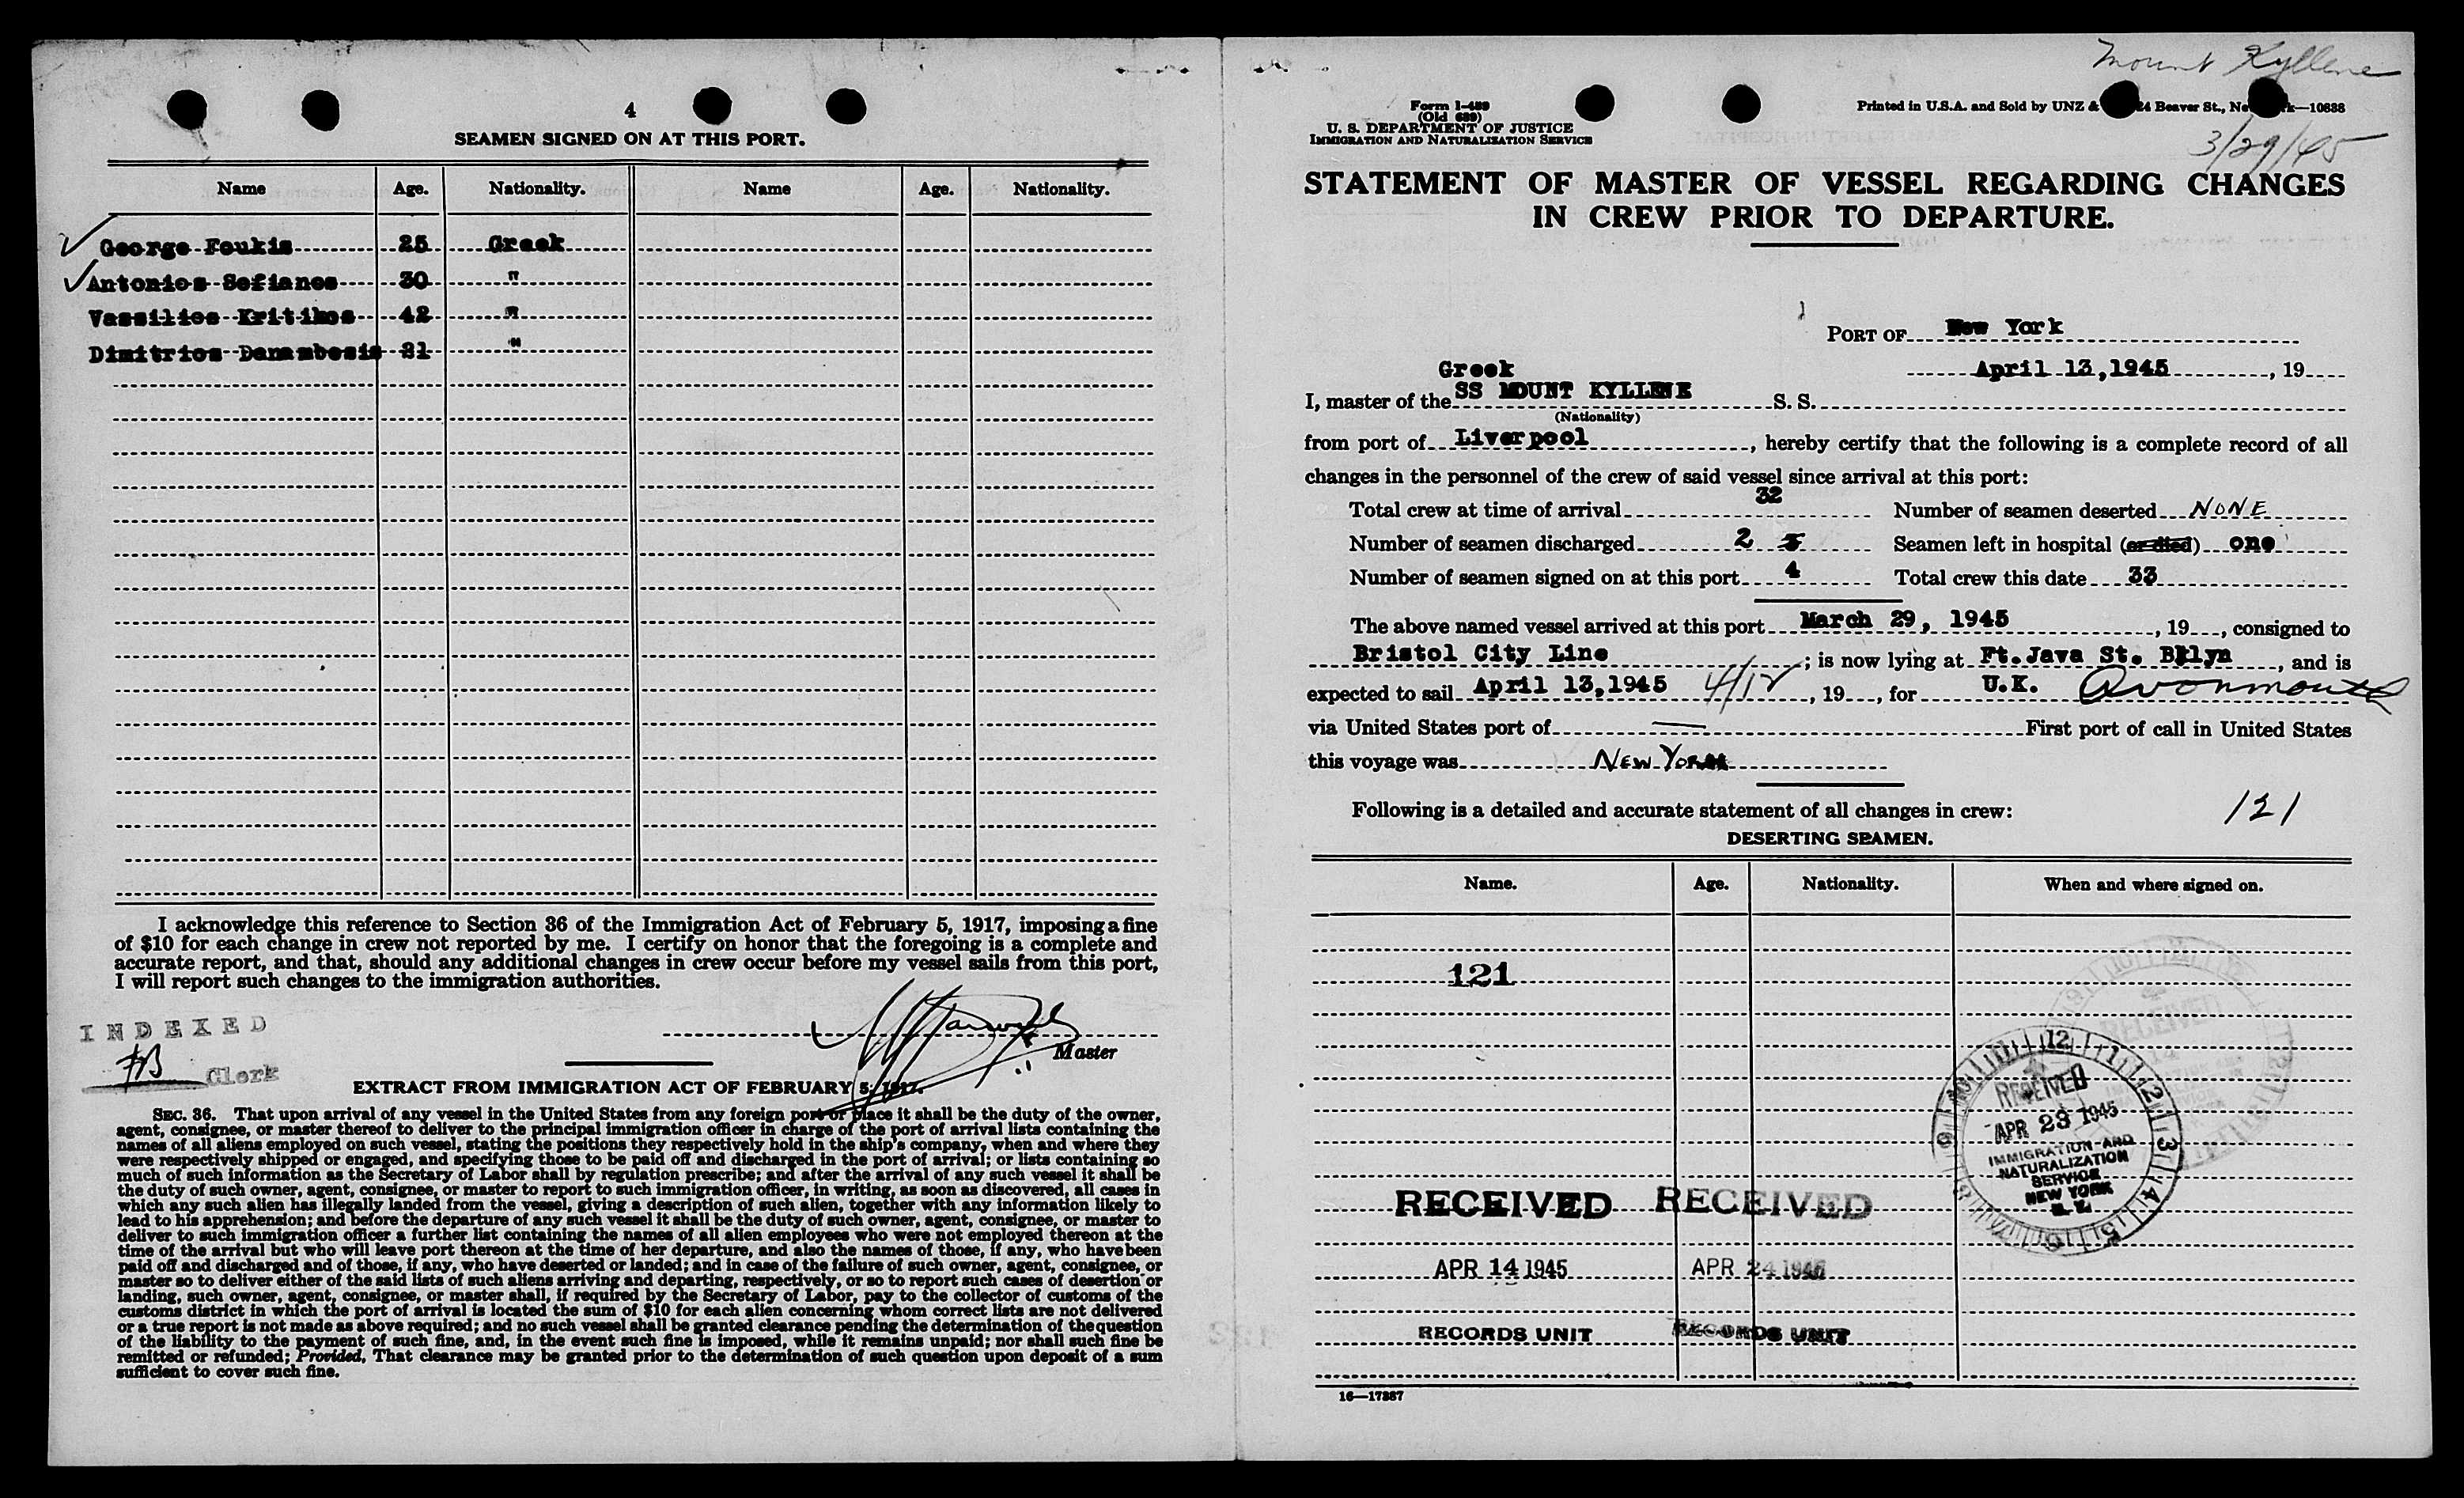 4
SEAMEN SIGNED ON AT THIS PORT.
Name Age. Nationality. Name Age. Nationality.
George Foukis 25 Greek
Antonios Sofianos 30 "
Vassilios Kritikos 42 "
Dimitrios 21 "
I acknowledge this reference to Section 36 of the Immigration Act of February 5, 1917, imposing a fine
of $10 for each change in crew not reported by me. I certify on honor that the foregoing is a complete and
accurate report, and that, should any additional changes in crew occur before my vessel sails from this port,
I will report such changes to the immigration authorities.
INDEXED
Clerk
Master
EXTRACT FROM IMMIGRATION ACT OF FEBRUARY 5, 1917.
SEC. 36. That upon arrival of any vessel in the United States from any foreign port or place it shall be the duty of the owner,
agent, consignee, or master thereof to deliver to the principal immigration officer in charge of the port of arrival lists containing the
names of all aliens employed on such vessel, stating the positions they respectively hold in the ship's company, when and where they
were respectively shipped or engaged, and specifying those to be paid off and discharged in the port of arrival; or lists containing so
much of such information as the Secretary of Labor shall by regulation prescribe; and after the arrival of any such vessel it shall be
the duty of such owner, agent, consignee, or master to report to such immigration officer, in writing, as soon as discovered, all cases in
which any such alien has illegally landed from the vessel, giving a description of such alien, together with any information likely to
lead to his apprehension; and before the departure of any such vessel it shall be the duty of such owner, agent, consignee, or master to
deliver to such immigration officer a further list containing the names of all alien employees who were not employed thereon at the
time of the arrival but who will leave port thereon at the time of her departure, and also the names of those, if any, who have been
paid off and discharged and of those, if any, who have deserted or landed; and in case of the failure of such owner, agent, consignee, or
master so to deliver either of the said lists of such aliens arriving and departing, respectively, or so to report such cases of desertion or
landing, such owner, agent, consignee, or master shall, if required by the Secretary of Labor, pay to the collector of customs of the
customs district in which the port of arrival is located the sum of $10 for each alien concerning whom correct lists are not delivered
or a true report is not made as above required; and no such vessel shall be granted clearance pending the determination of the question
of the liability to the payment of such fine, and, in the event such fine is imposed, while it remains unpaid; nor shall such fine be
remitted or refunded; Provided, That clearance may be granted prior to the determination of such question upon deposit of a sum
sufficient to cover such fine.
Mount Kyllene
Form I-489
(Old 689)
U. S. DEPARTMENT OF JUSTICE
IMMIGRATION AND NATURALIZATION SERVICE
Printed in U.S.A. and Sold by UNZ & 24 Beaver St., Ne k—10638
3/29/45
STATEMENT OF MASTER OF VESSEL REGARDING CHANGES
IN CREW PRIOR TO DEPARTURE.
PORT OF New York
April 13, 1945, 19
Greek
I, master of the SS MOUNT KYLLENE S. S.
(Nationality)
from port of Liverpool, hereby certify that the following is a complete record of all
changes in the personnel of the crew of said vessel since arrival at this port:
Total crew at time of arrival 32 Number of seamen deserted NONE
Number of seamen discharged 2 3 Seamen left in hospital (or died) one
Number of seamen signed on at this port 4 Total crew this date 33
The above named vessel arrived at this port March 29, 1945, 19, consigned to
Bristol City Line; is now lying at Ft. Java St. Bklyn, and is
expected to sail April 13, 1945 4/12, 19, for U.K. Avonmouth
via United States port of — First port of call in United States
this voyage was NEW YORK
Following is a detailed and accurate statement of all changes in crew: 121
DESERTING SEAMEN.
Name. Age. Nationality. When and where signed on.
121
RECEIVED
APR 23 1945
IMMIGRATION AND
NATURALIZATION
SERVICE
NEW YORK
N. Y.
RECEIVED RECEIVED
APR 14 1945 APR 24 1945
RECORDS UNIT RECORDS UNIT
16—17387